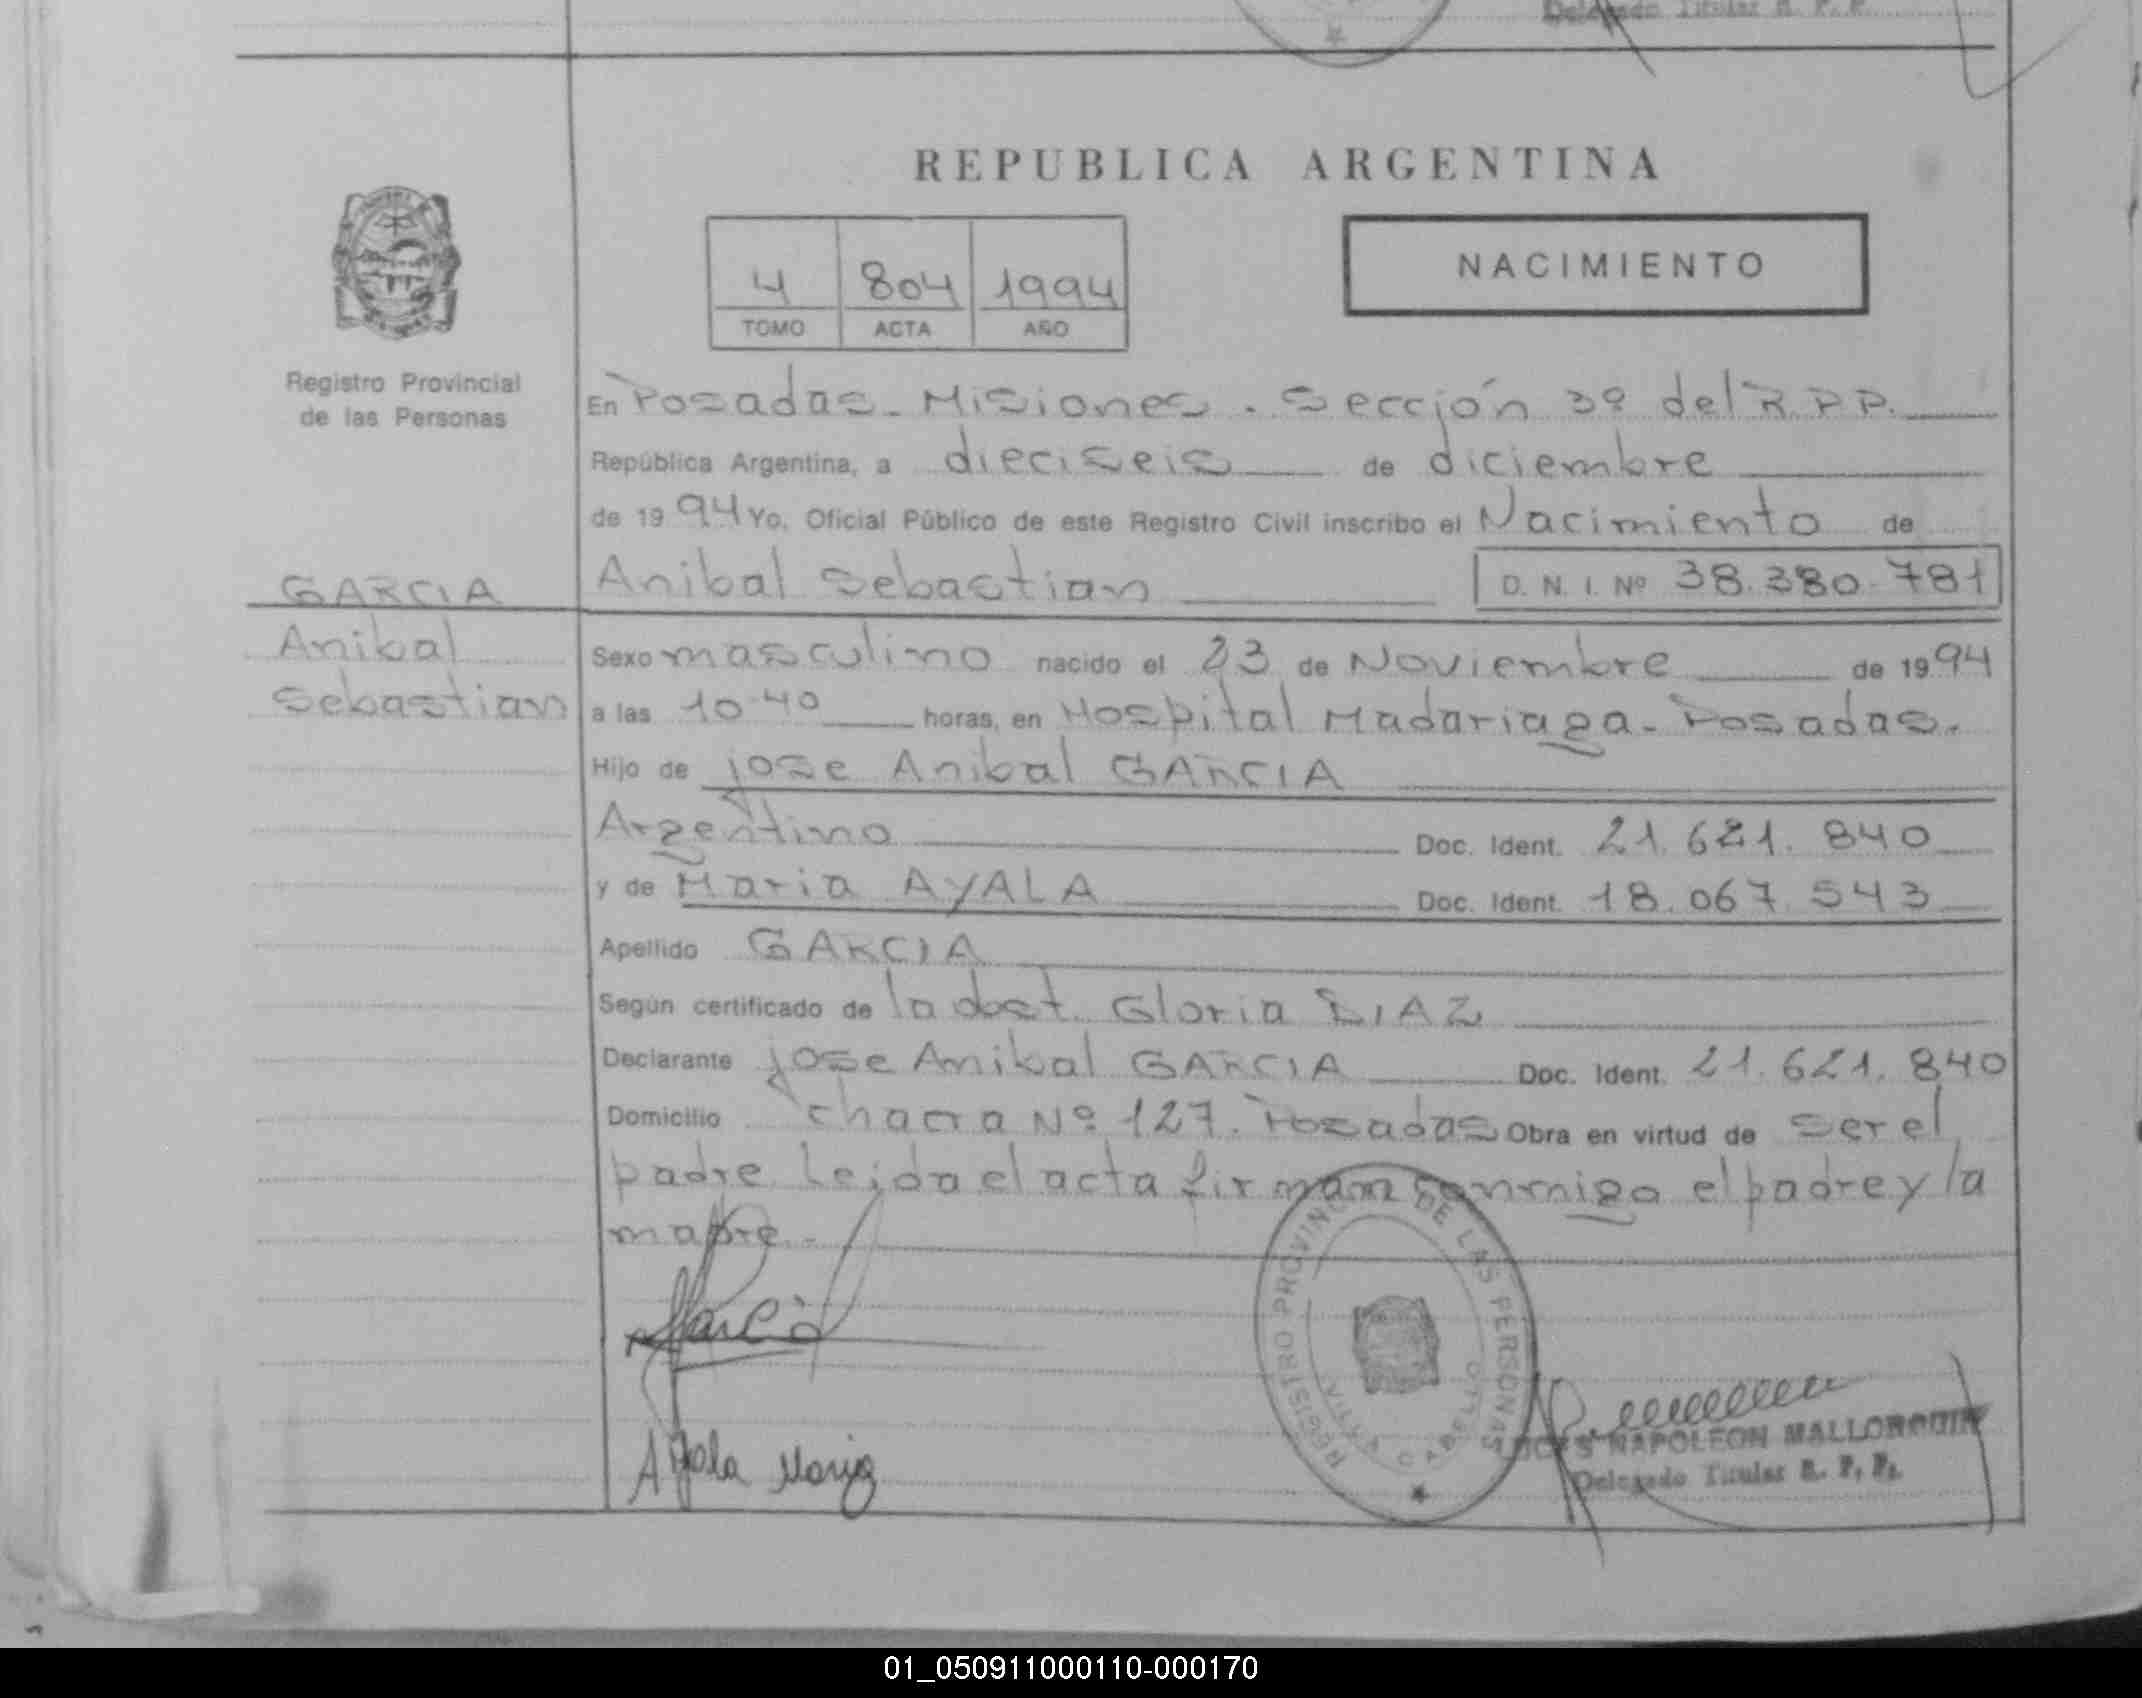 Delegado Titular R. P. P.
REPUBLICA ARGENTINA
NACIMIENTO
4 804 1994
TOMO ACTA AÑO
Registro Provincial
de las Personas
En Posadas - Misiones. Sección 3º del R.P.P.
República Argentina, a dieciseis de diciembre
de 1994 Yo, Oficial Público de este Registro Civil inscribo el Nacimiento de
GARCIA
Anibal
Sebastian
Anibal Sebastian D. N. I. Nº 38.380.781
Sexo masculino nacido el 23 de Noviembre de 1994
a las 10.40 horas, en Hospital Madariaga - Posadas.
Hijo de jose Anibal GARCIA
Argentino Doc. Ident. 21.621.840
y de Maria AYALA Doc. Ident. 18.067.543
Apellido GARCIA
Según certificado de la obst. Gloria DIAZ
Declarante jose Anibal GARCIA Doc. Ident. 21.621.840
Domicilio chacra Nº 127. Posadas Obra en virtud de ser el
padre. Leida el acta firman conmigo el padre y la
madre.-
Garcia
Ayala Maria
REGISTRO PROVINCIAL DE LAS PERSONAS
VILLA CABELLO
NAPOLEON MALLORQUIN
Delegado Titular R. P. P.
01_050911000110-000170